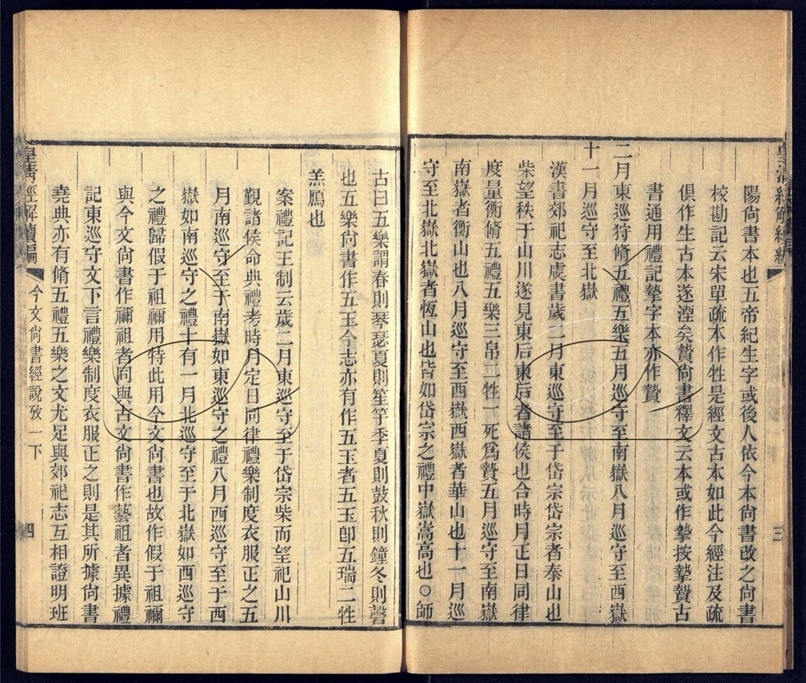 陽尚書本也五帝紀生字或後人依今本尚書改之尚書
校勘記云宋單疏本作牲是經文古本如此今經注及疏
俱作生古本遂湮矣贄尚書釋文云本或作摯按摯贄古
書通用禮記摯字本亦作贄
二月東巡狩脩五禮五樂五月巡守至南嶽八月巡守至西嶽
十一月巡守至北嶽
漢書郊祀志虞書歲二月東巡守至于岱宗岱宗者泰山也
柴望秩于山川遂見東后東后者諸侯也合時月正日同律
度量衡脩五禮五樂三帛二牲一死爲贄五月巡守至南嶽
南嶽者衡山也八月巡守至西嶽西嶽者華山也十一月巡
守至北嶽北嶽者恆山也皆如岱宗之禮中嶽嵩高也〇師
三
古曰五樂謂春則琴瑟夏則笙竽季夏則鼓秋則鐘冬則磬
也五樂尚書作五玉今志亦有作五玉者五玉卽五瑞二牲
羔鴈也
案禮記王制云歲二月東巡守至于岱宗柴而望祀山川
覲諸侯命典禮考時月定日同律禮樂制度衣服正之五
月南巡守至于南嶽如東巡守之禮八月西巡守至于西
嶽如南巡守之禮十有一月北巡守至于北嶽如西巡守
之禮歸假于祖禰用特此用今文尚書也故作假于祖禰
與今文尚書作禰祖者同與古文尚書作藝祖者異據禮
記東巡守文下言禮樂制度衣服正之則是其所據尚書
堯典亦有脩五禮五樂之文尤足與郊祀志互相證明班
皇清經解續編
今文尚書經說攷一下
四